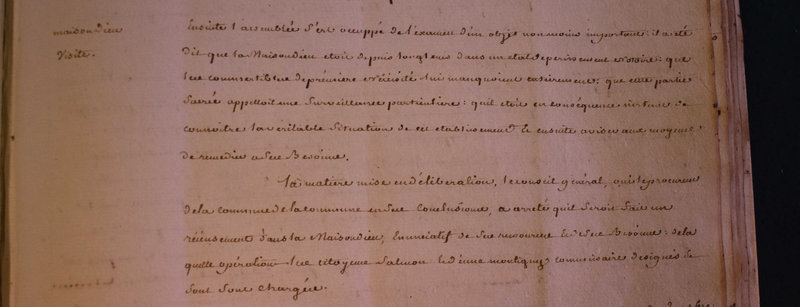 maisondieu
Visite.
Ensuite l'assemblée s'est occupé de l'examen d'un objet non moins important: il a été
dit que la Maisondieu etoit depuis longtems dans un etat deperissement notoire: que
les comestibles de première nécéssité lui manquoient entierement: que cette partie
sacrée appelloit une surveillance particuliere: quil etoit en conséquence instant de
connoitre la veritable situation de cet etablissement et ensuite aviser aux moyens
de remedier a ses Besoins.
La matiere mise en déliberation, le conseil général, oui le procureur
de la commune de la commune en ses conclusions, a arreté quil seroit fait un
récensement dans la Maisondieu, enunciatif de ses ressources et de ses Besoins: de la
quelle opération les citoyens Salmon et commissaires designés
sont chargés.